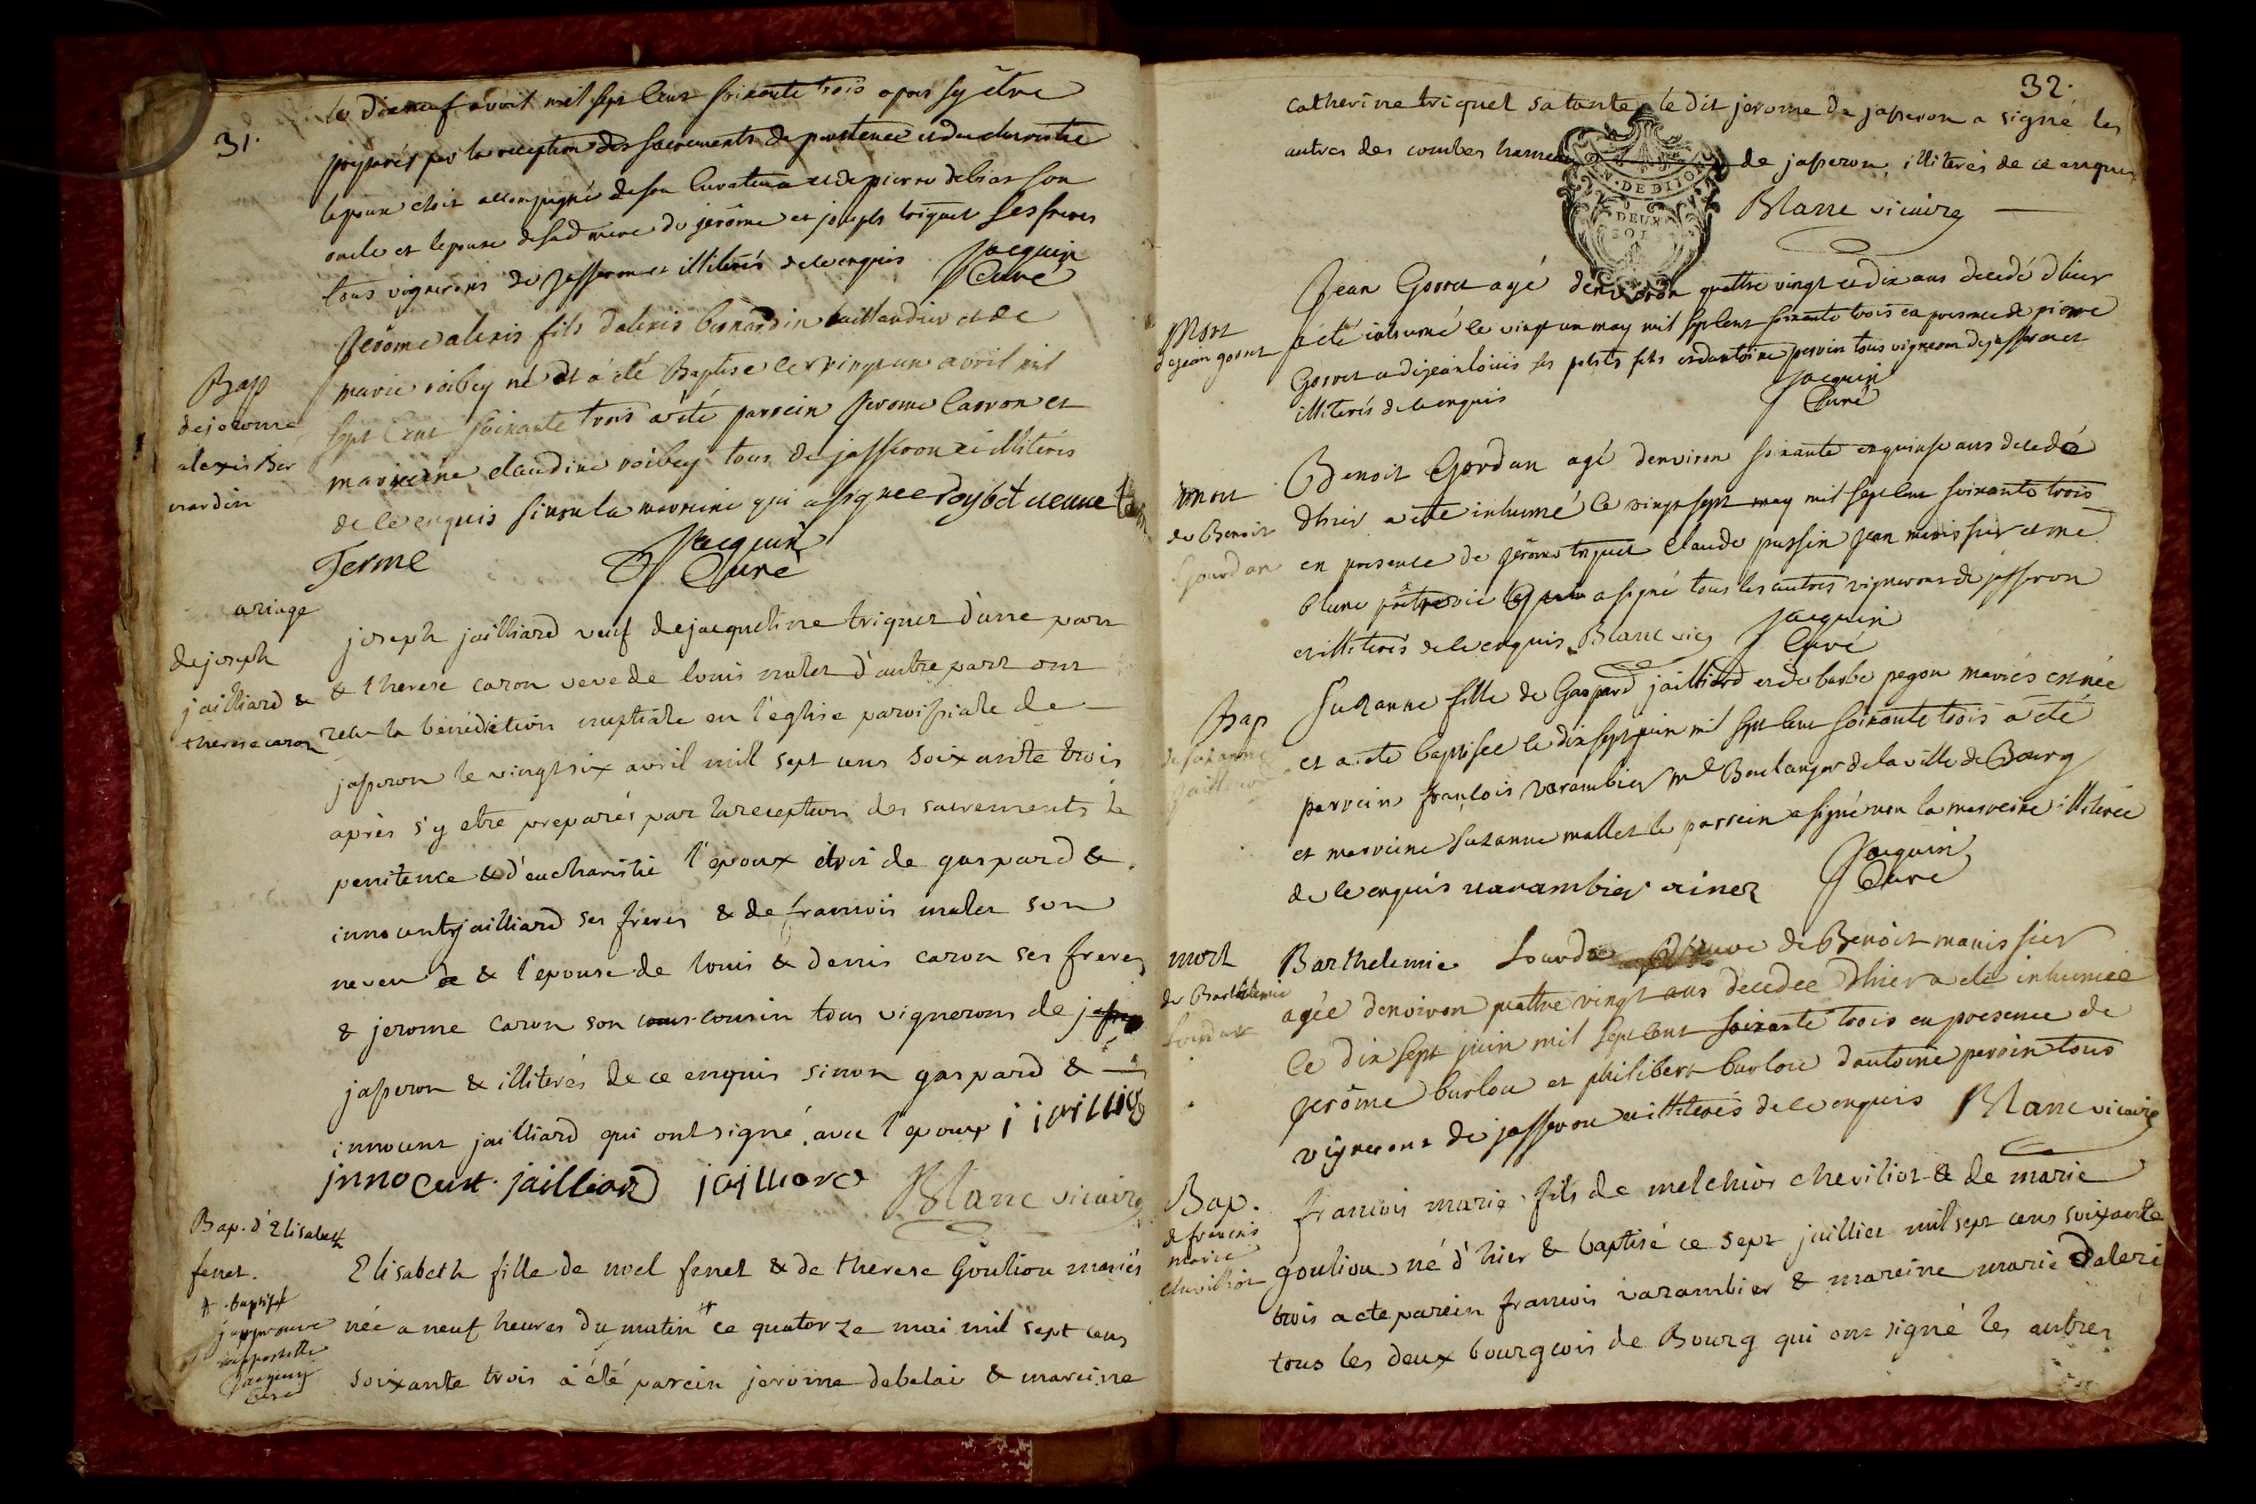 31.
le dix neuf avril mil sept Cent soixante trois apres sy être
preparés par la reception des sacrements de penitence et de eucharistie
lepoux etoit accompagné de son Curateur et de pierre debias son
oncle et lepouse de sad mere de jerôme et joseph triquet ses freres
tous vignerons de Jasseron et illiterés de ce enquis Jacquin
Curé
Bap
de jerome
alexis Ber
nardin
Jerôme alexis fils dalexis bernardin taillandier et de
marie roibey né et a été Baptisé le vingt un avril mil
sept Cent soixante trois a été parrein Jerome Carron et
marreine claudine roibey tous de jasseron et illiterés
de ce enquis sinon la marreine qui a signee Roybet
Ferme
Jacquin
Curé
ariage
de joseph
jailliard &
therese caron
joseph jailliard veuf de jacqueline triquet d'une part
& therese caron veve de louis mulet d'autre part ont
recu la bénédiction nuptiale en l'eglise paroissiale de
jasseron le vingt six avril mill sept cens soixante trois
après s'y etre preparés par la reception des sacrements de
penitence & d'eucharistie l'epoux étoi de gaspard &
innocent jailliard ses freres & de francois mulet son
neveu & l'epouse de louis & denis caron ses freres
& jerome caron son cousin tous vignerons de
jasseron & illiterés de ce enquis sinon gaspard &
innocent jailliard qui ont signé avec l'epoux j jailliard
jnnocent jailliard jailliard
Blanc vicaire
Bap. d'Elisabeth
fenet.
# baptisé
japprouve
Jacquin
Curé
Elisabeth fille de noel fenet & de therese Gouliou mariés
née a neuf heures du matin # ce quatorze mai mil sept cens
soixante trois a été parein jerome debelai & mareine
32.
catherine triquet sa tante le dit jerome de jasseron a signé les
autres des combes hameau de jasseron, illiterés de ce enquis
EN. DE DIJON
DEUX
SOLS
Blanc vicaire
Mort
de jean gorret
Jean Gorret agé denviron quattre vingt et dix ans decedé dhier
a été inhumé le vingt un may mil sept Cent soixante trois en presence de pierre
Gorret et de jean louis ses petits fils et dantoine perrin tous vignerons de jasseron et
illiterés de ce enquis
Jacquin
Curé
mort
de Benoit
Gourdan
Benoit Gordan agé denviron soixante et quinse ans decedé
dhier a été inhumé le vingt sept may mil sept Cent soixante trois
en presence de jerôme triquet claude passin jean manissier et me
blanc prêtre vic a signé tous les autres vignerons de jasseron
et illiterés de ce enquis Blanc vic Jacquin
Curé
Bap
de suzanne
jailliard
Suzanne fille de Gaspard jailliard et de barbe pegon mariés est née
et a été baptisée le dix sept juin mil sept Cent soixante trois a été
parrein francois varambier Md Boulanger de la ville de Bourg
et marreine suzanne mallet le parrein a signé non la marreine illiterée
de ce enquis varambier ainez
Jacquin
Curé
mort
de Barthelemie
Sourdat
Barthelemie veuve de Benoit manissier
agée denviron quattre vingt ans decedée dhier a été inhumée
le dix sept juin mil sept Cent soixante trois en presence de
jerôme burlou et philibert burlou dantoine perrin tous
vignerons de jasseron et illiterés de ce enquis Blanc vicaire
Bap.
de francois
marie
chevilliot
francois marie fils de melchior cheviliot & de marie
gouliou né d'hier & baptisé ce sept juillet mil sept cens soixante
trois a été parein francois varambier & mareine marie
tous les deux bourgeois de Bourg qui ont signé les autres